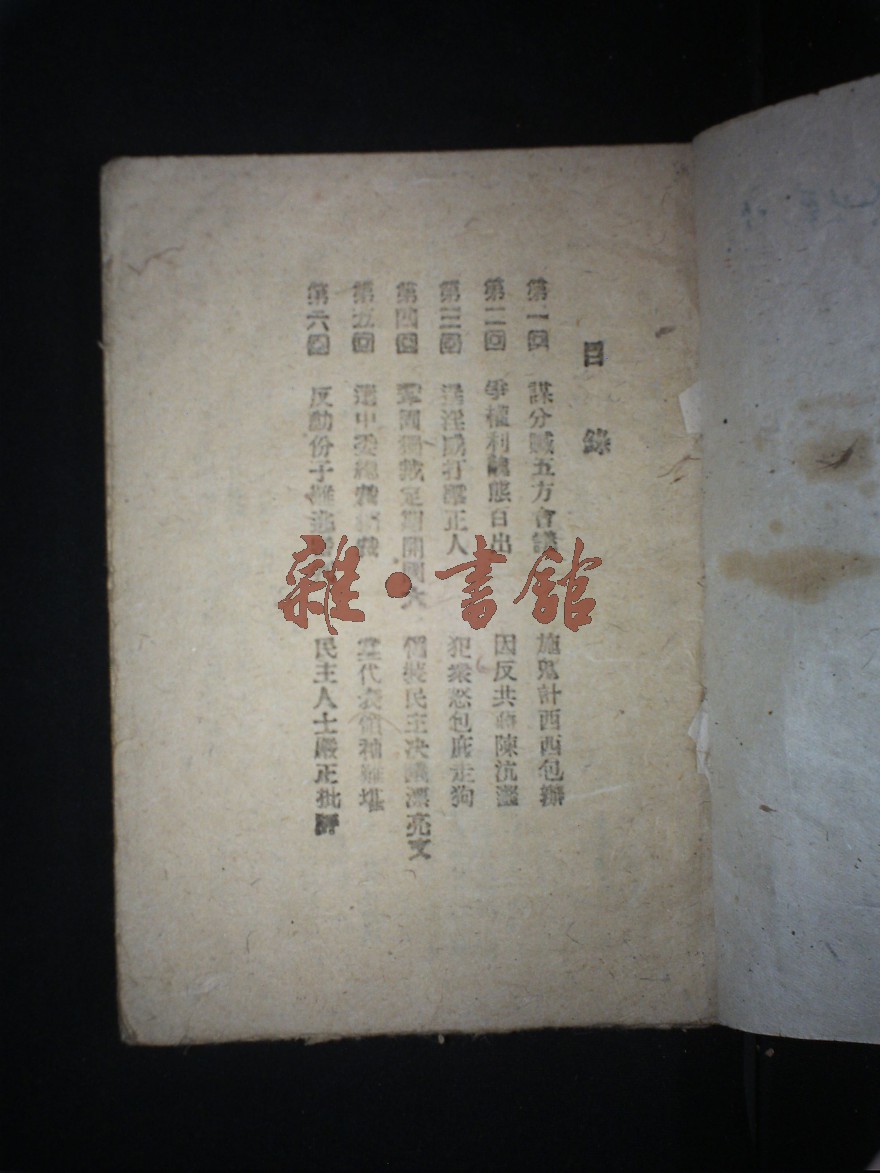 目錄
第一回 謀分贓五方會議 施鬼計西西包辦
第二回 爭權利醜態百出 因反共蔣陳沆瀣
第三回 淫威打擊正人 犯衆怒包庇走狗
第四回 獨裁定期開國大 僞裝民主决議漂亮文
第五回 選中委總裁 代表領袖難堪
第六回 反動份子難逃 民主人士嚴正批評
雜·書館